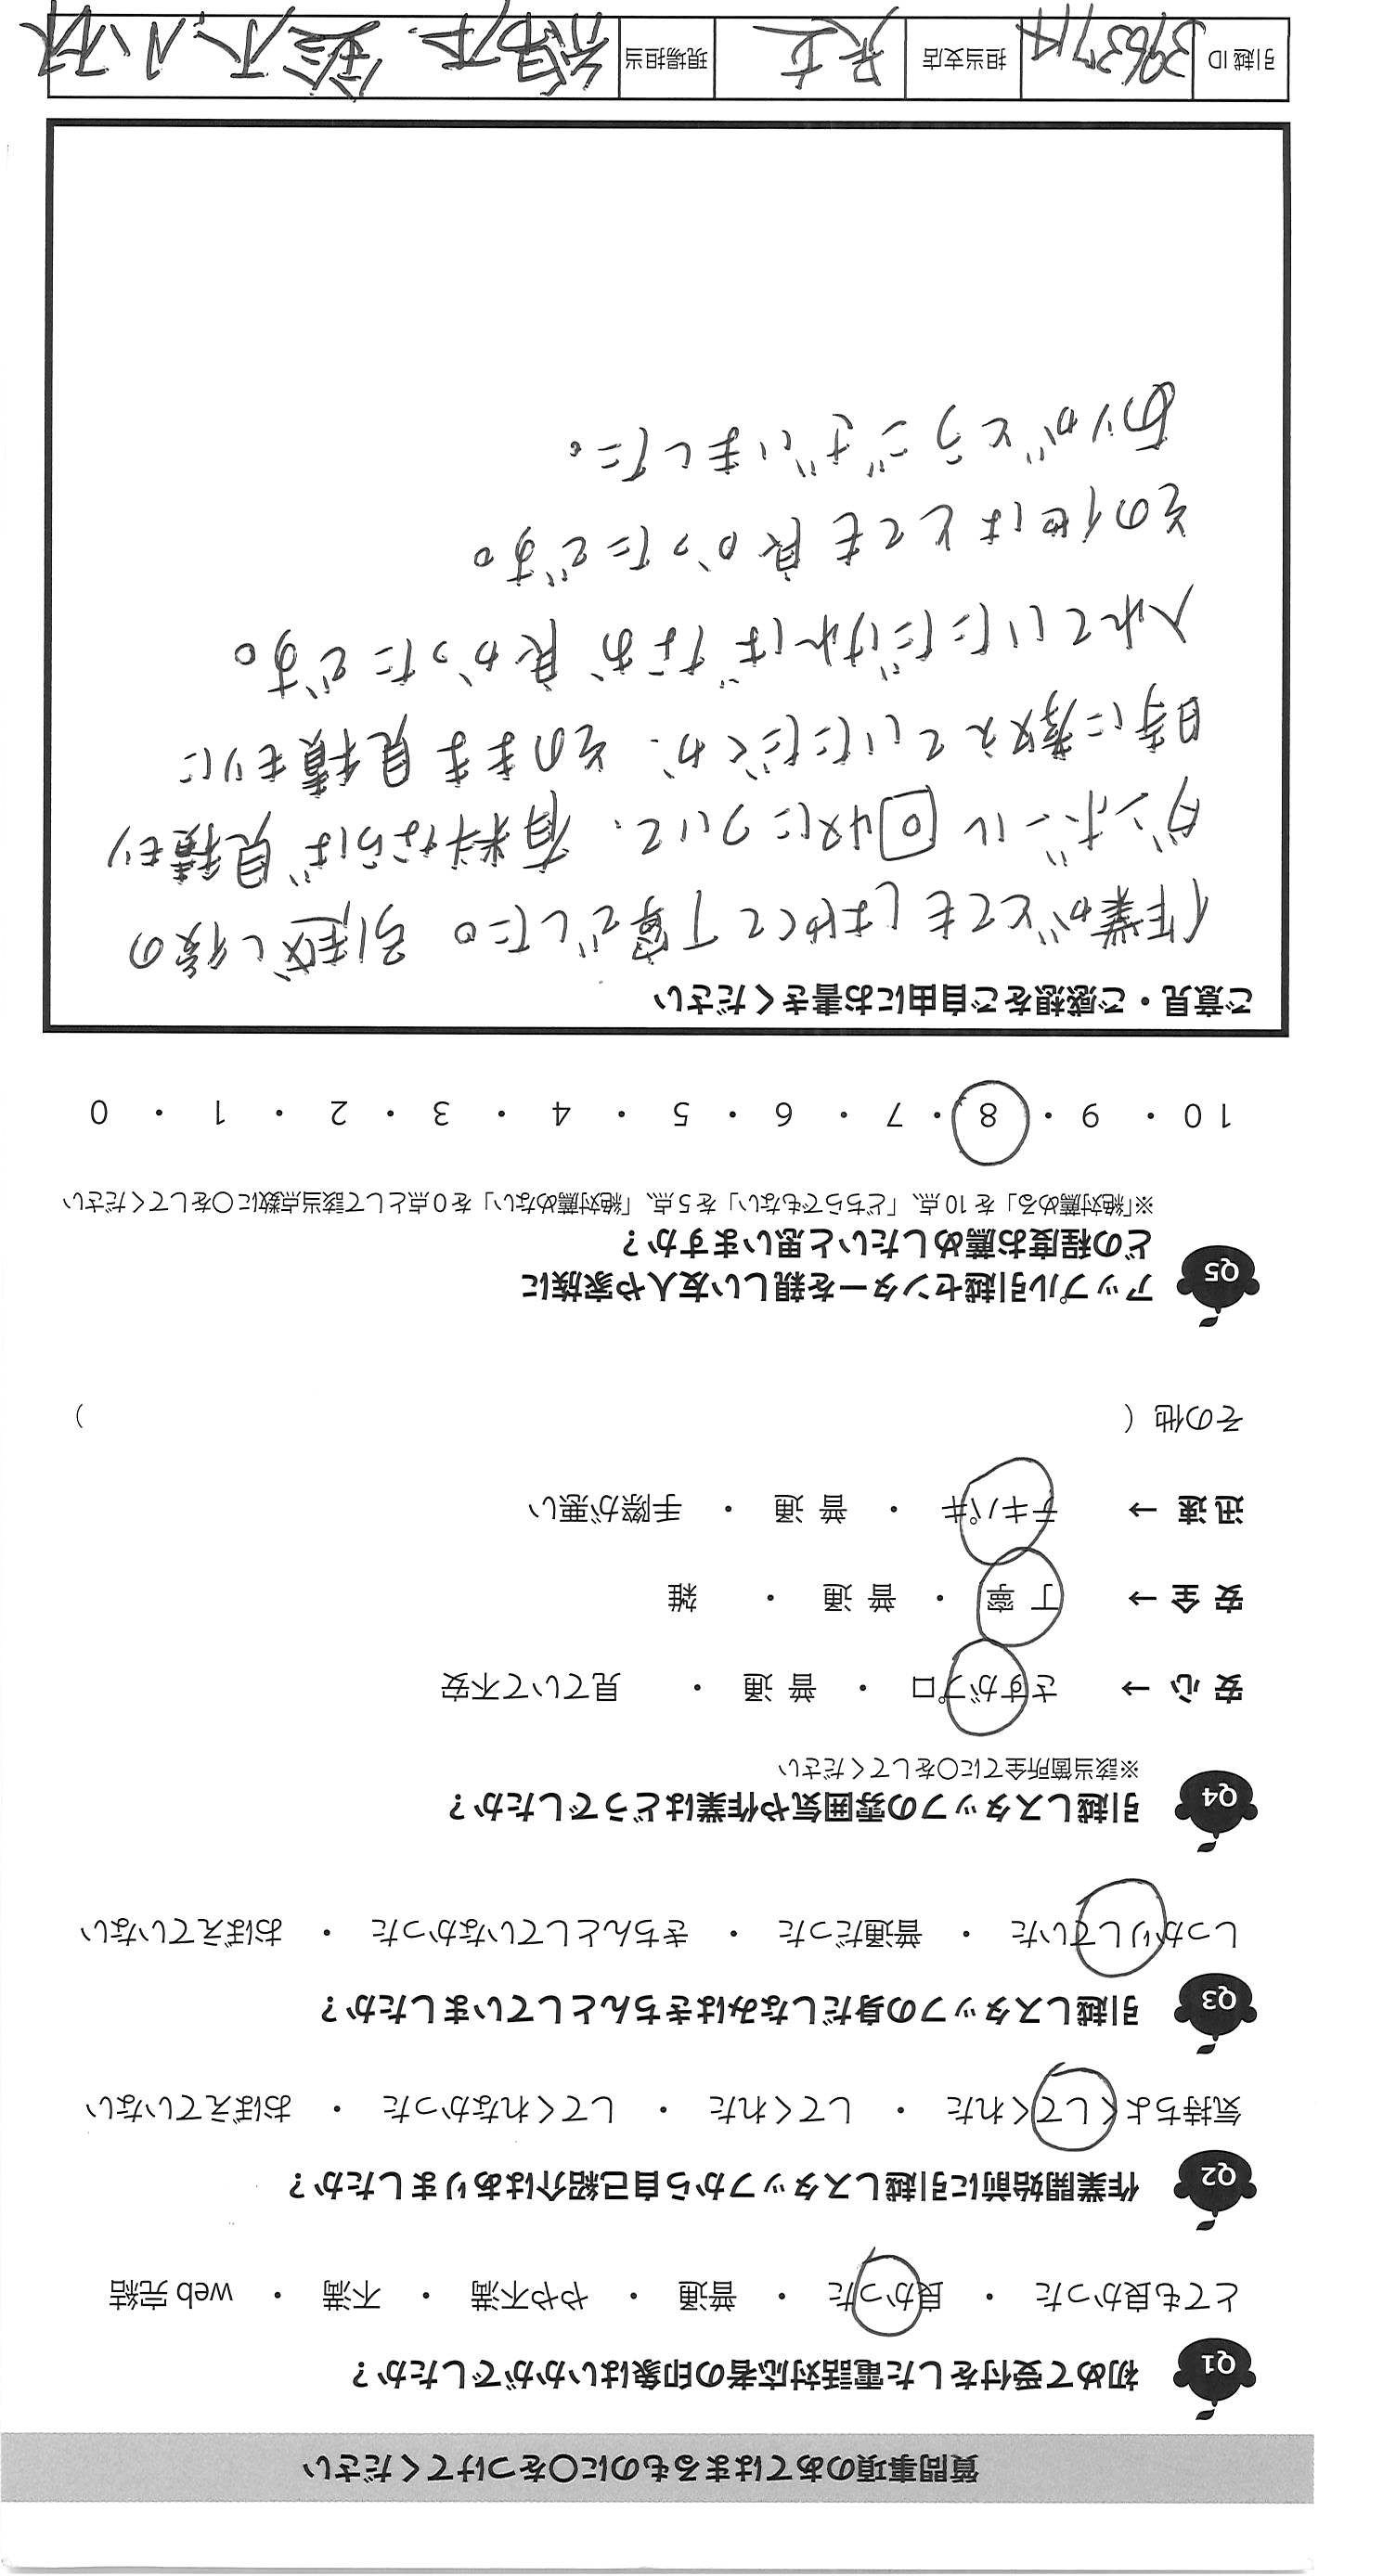 質問事項のあてはまるものに○をつけてください
Q1 初めて受付をした電話対応者の印象はいかがでしたか？
とても良かった ・ 良かった ・ 普通 ・ やや不満 ・ 不満 ・ web 完結
Q2 作業開始前に引越しスタッフから自己紹介はありましたか？
気持ちよくしてくれた ・ してくれた ・ してくれなかった ・ おぼえていない
Q3 引越しスタッフの身だしなみはきちんとしていましたか？
しっかりしていた ・ 普通だった ・ きちんとしていなかった ・ おぼえていない
Q4 引越しスタッフの雰囲気や作業はどうでしたか？
※該当箇所全てに○をしてください
安心 → さすがプロ ・ 普通 ・ 見ていて不安
安全 → 丁寧 ・ 普通 ・ 雑
迅速 → テキパキ ・ 普通 ・ 手際が悪い
その他（ ）
Q5 アップル引越センターを親しい友人や家族に
どの程度お薦めしたいと思いますか？
※「絶対薦める」を 10 点、「どちらでもない」を 5 点、「絶対薦めない」を 0 点として該当点数に○をしてください
10 ・ 9 ・ 8 ・ 7 ・ 6 ・ 5 ・ 4 ・ 3 ・ 2 ・ 1 ・ 0
ご意見・ご感想をご自由にお書きください
作業がとてもしはやくて丁寧でした。引越し後の
ダンボール回収について、有料ならば見積もり
時に教えていただくか、そのまま見積もりに
入れていただければなお良かったです。
その他はとても良かったです。
ありがとうございました。
引越 ID 3963714 担当支店 足立 現場担当 鈴木 小林